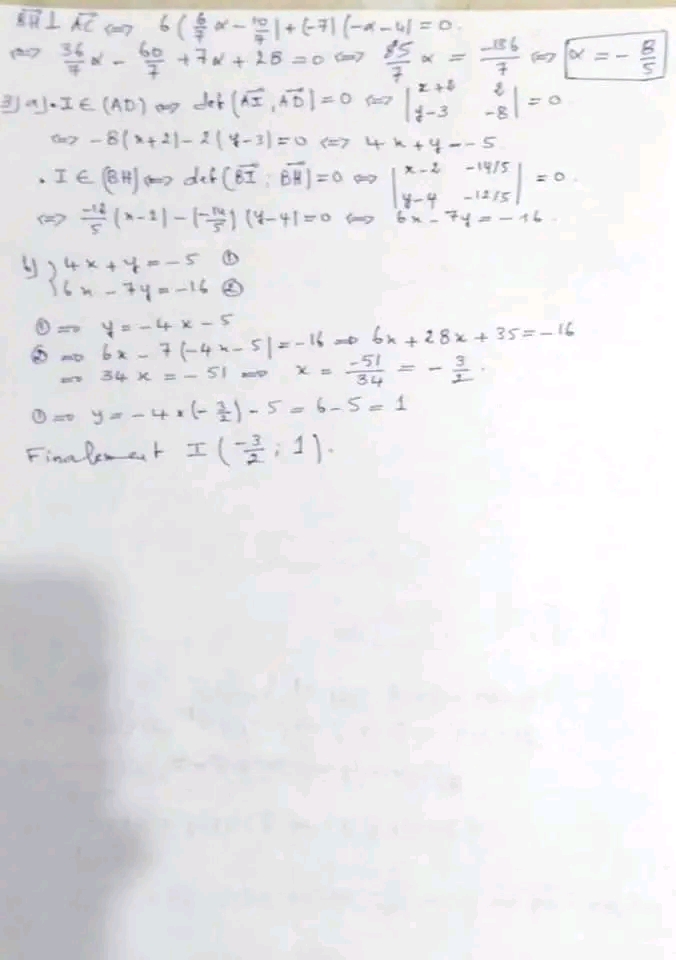 BH⃗ ⊥ AC⃗ ⇔ 6(6/7 α - 10/7) + (-7)(-α-4) = 0.
⇔ 36/7 α - 60/7 + 7α + 28 = 0 ⇔ 85/7 α = -136/7 ⇔ α = - 8/5
3) a) • I ∈ (AD) ⇔ det(AI⃗, AD⃗) = 0 ⇔ |x+2 2; y-3 -8| = 0.
⇔ -8(x+2) - 2(y-3) = 0 ⇔ 4x + y = -5.
• I ∈ (BH) ⇔ det(BI⃗; BH⃗) = 0 ⇔ |x-2 -14/5; y-4 -12/5| = 0.
⇔ -12/5 (x-2) - (-14/5)(y-4) = 0 ⇔ 6x - 7y = -16.
b) { 4x + y = -5 ①
6x - 7y = -16 ②
① ⇒ y = -4x - 5
② ⇒ 6x - 7(-4x-5) = -16 ⇒ 6x + 28x + 35 = -16
⇒ 34x = -51 ⇒ x = -51/34 = - 3/2.
① ⇒ y = -4×(-3/2) - 5 = 6 - 5 = 1
Finalement I(-3/2 ; 1).